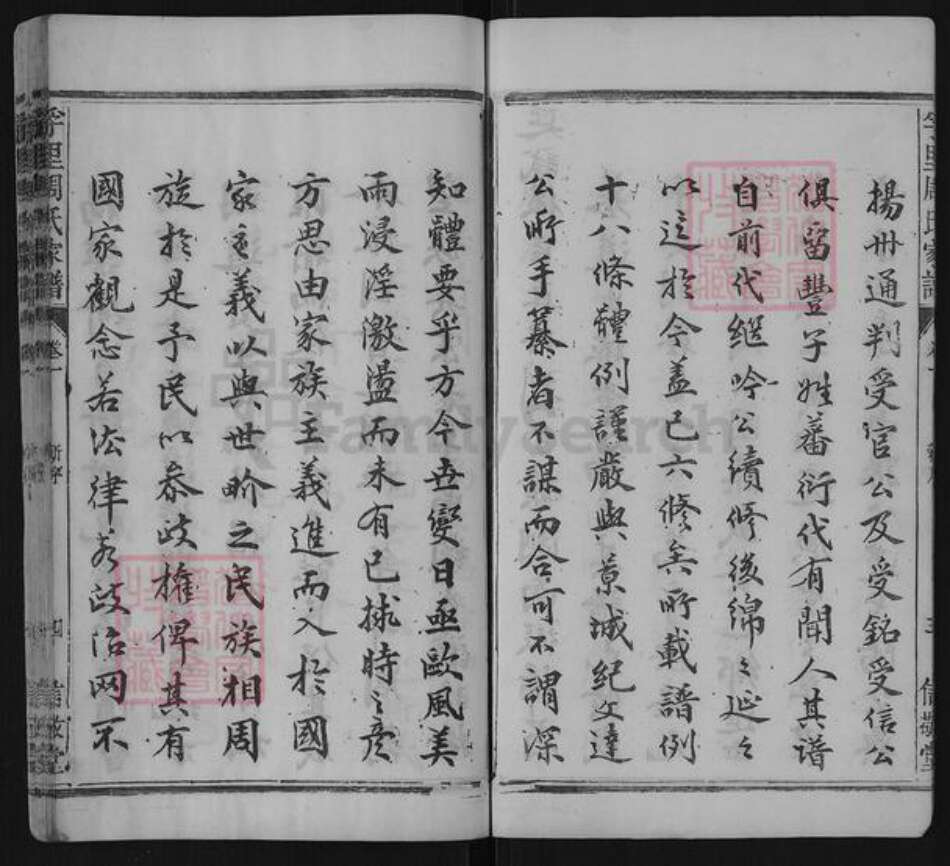 揚州通判受官公及受銘受信公
俱留豐子姓蕃衍代有聞人其譜
自前代繼吟公續修後綿々延々
以迄於今蓋已六修矣所載譜例
十八條體例謹嚴與景城紀文達
公所手纂者不謀而合可不謂深
知體要乎方今世變日亟歐風美
雨浸淫激盪而未有已拯時之彥
方思由家族主義進而入於國
家主義以與世界之民族相周
旋於是予民以叅政權俾其有
國家觀念若法律若政治罔不
周氏家譜
卷一
新序
四
信敬堂
FamilySearch